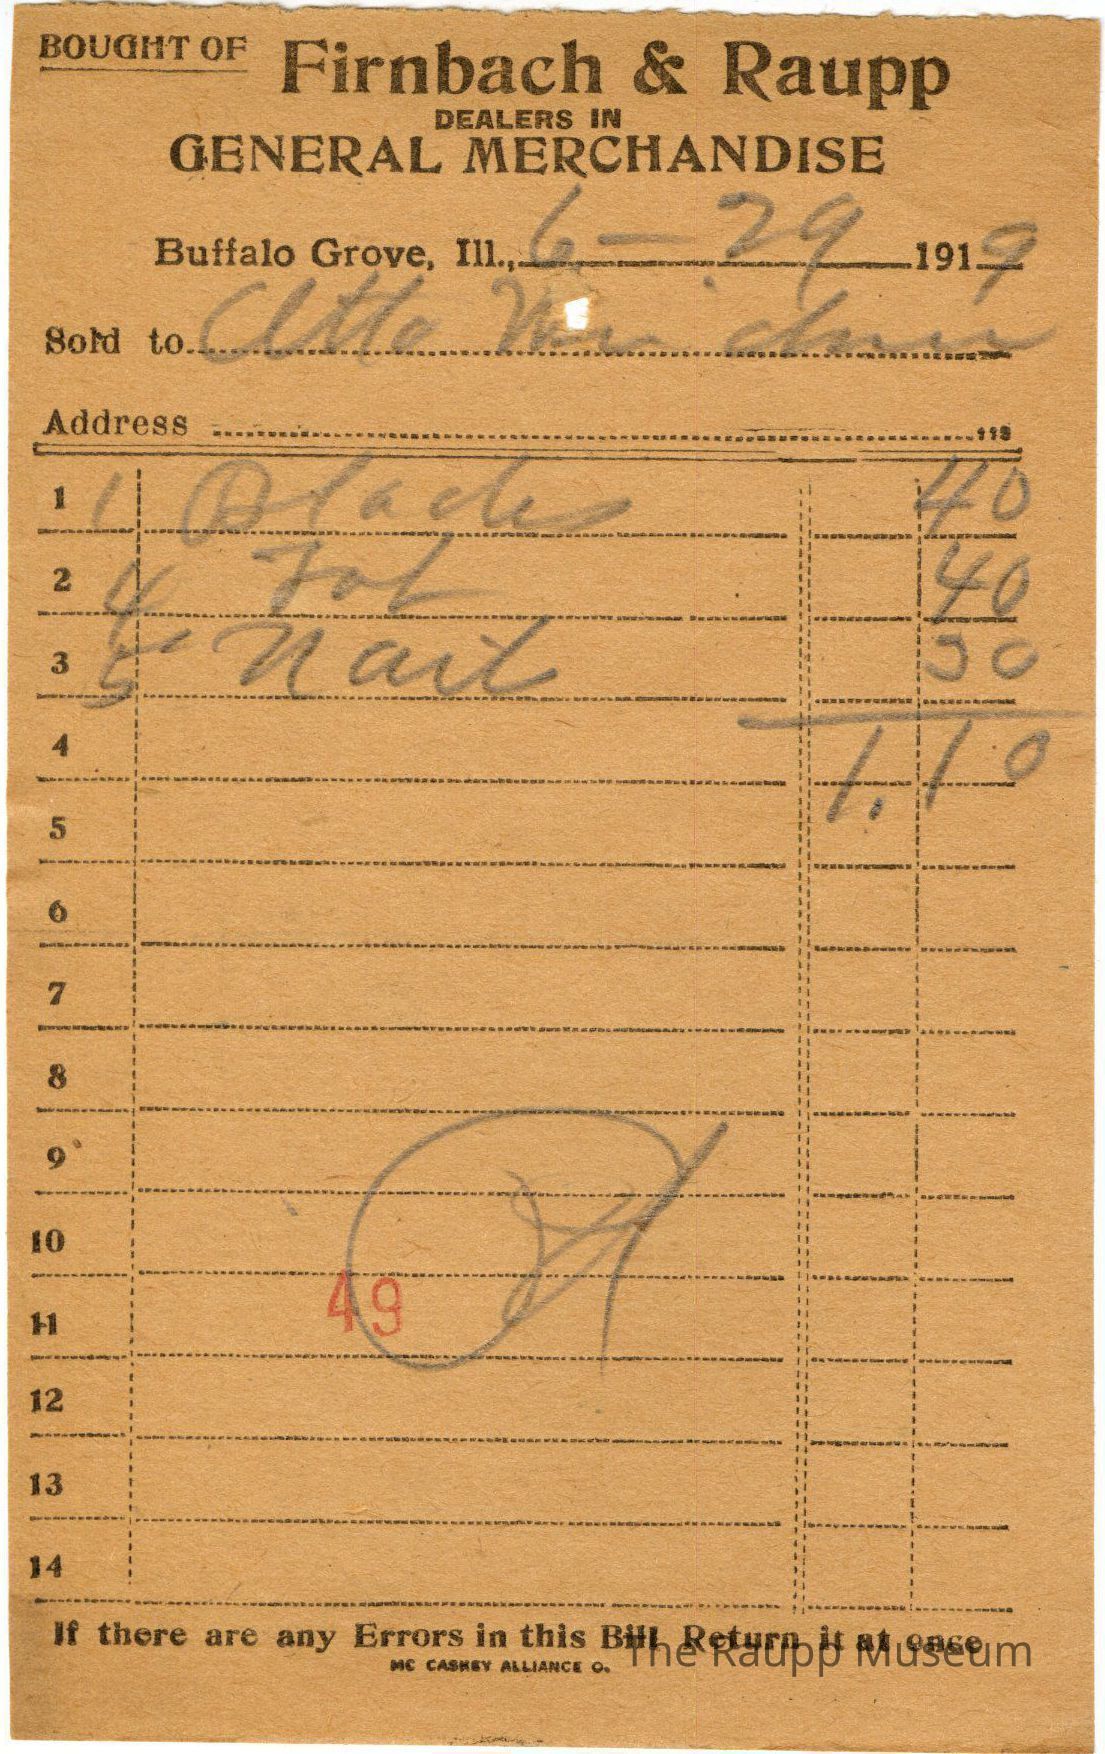 BOUGHT OF Firnbach & Raupp
DEALERS IN
GENERAL MERCHANDISE
Buffalo Grove, Ill., 6 — 29 1919
Sold to Otto
Address
113
1 1 40
2 4 40
3 5 Nails 30
4 1.10
5
6
7
8
9
10
11 49
12
13
14
If there are any Errors in this Bill Return it at once
MC CASKEY ALLIANCE O.
The Raupp Museum